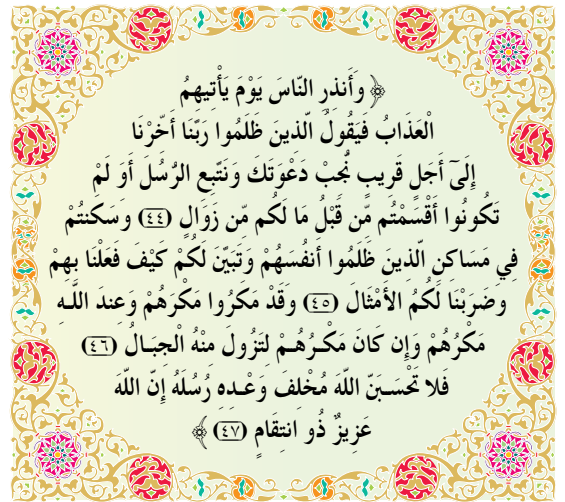 ﴿ وَأَنذِرِ النَّاسَ يَوْمَ يَأْتِيهِمُ
الْعَذَابُ فَيَقُولُ الَّذِينَ ظَلَمُوا رَبَّنَا أَخِّرْنَا
إِلَىٰ أَجَلٍ قَرِيبٍ نُّجِبْ دَعْوَتَكَ وَنَتَّبِعِ الرُّسُلَ أَوَ لَمْ
تَكُونُوا أَقْسَمْتُم مِّن قَبْلُ مَا لَكُم مِّن زَوَالٍ (٤٤) وَسَكَنتُمْ
فِي مَسَاكِنِ الَّذِينَ ظَلَمُوا أَنفُسَهُمْ وَتَبَيَّنَ لَكُمْ كَيْفَ فَعَلْنَا بِهِمْ
وَضَرَبْنَا لَكُمُ الأَمْثَالَ (٤٥) وَقَدْ مَكَرُوا مَكْرَهُمْ وَعِندَ اللَّـهِ
مَكْرُهُمْ وَإِن كَانَ مَكْـرُهُـمْ لِتَزُولَ مِنْهُ الْجِبَـالُ (٤٦)
فَلا تَحْسَـبَنَّ اللَّهَ مُخْلِفَ وَعْـدِهِ رُسُلَهُ إِنَّ اللَّهَ
عَزِيزٌ ذُو انتِقَامٍ (٤٧) ﴾